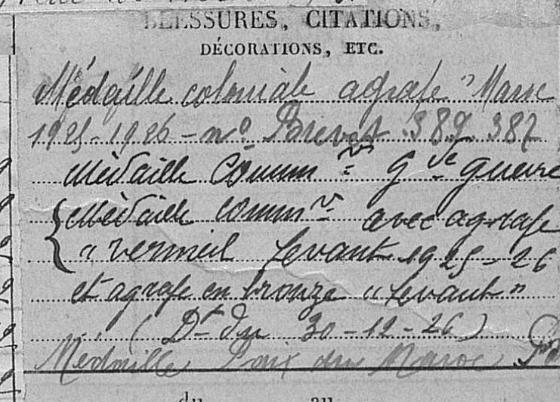 BLESSURES, CITATIONS,
DÉCORATIONS, ETC.
Médaille coloniale agrafe "Maroc
1925-1926 - no Brevet 389.387
Médaille Commve Gde guerre
Médaille commve avec agrafe
" vermeil Levant 1925-26
et agrafe en bronze "Levant"
(Dt du 30-12-26)
Médaille Paix du Maroc
du au